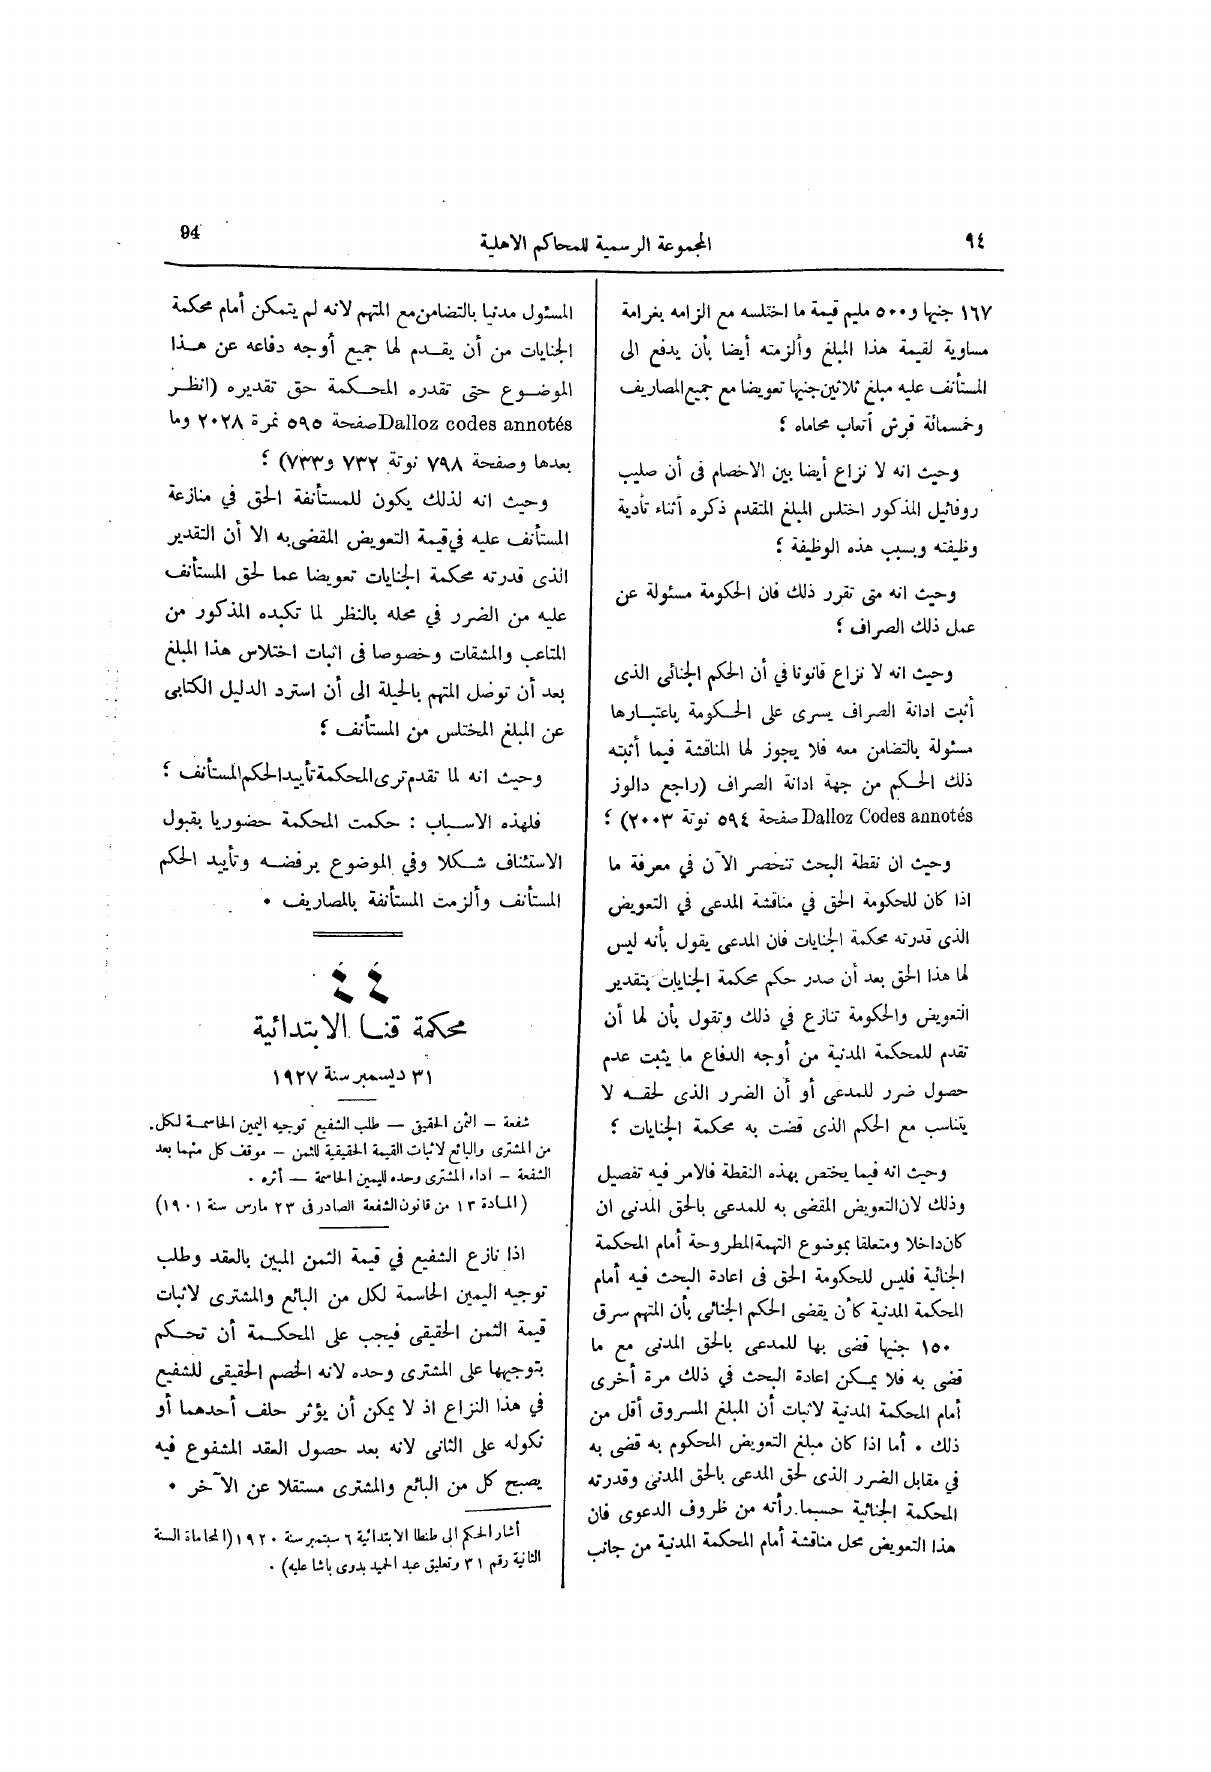 ٩٤
المجموعة الرسمية للمحاكم الاهلية
94
١٦٧ جنيها و٥٠٠ مليم قيمة ما اختلسه مع الزامه بغرامة
مساوية لقيمة هذا المبلغ وألزمته أيضا بأن يدفع الى
المستأنف عليه مبلغ ثلاثين جنيها تعويضا مع جميع المصاريف
وخمسمائة قرش أتعاب محاماه ؛
وحيث انه لا نزاع أيضا بين الاخصام فى أن صليب
روفائيل المذكور اختلس المبلغ المتقدم ذكره أثناء تأدية
وظيفته وبسبب هذه الوظيفة ؛
وحيث انه متى تقرر ذلك فان الحكومة مسئولة عن
عمل ذلك الصراف ؛
وحيث انه لا نزاع قانونا في أن الحكم الجنائى الذى
أثبت ادانة الصراف يسرى على الحكومة باعتبارها
مسئولة بالتضامن معه فلا يجوز لها المناقشة فيما أثبته
ذلك الحكم من جهة ادانة الصراف (راجع دالوز
Dalloz Codes annotés صفحة ٥٩٤ نوتة ٢٠٠٣) ؛
وحيث ان نقطة البحث تنحصر الآن في معرفة ما
اذا كان للحكومة الحق في مناقشة المدعى في التعويض
الذى قدرته محكمة الجنايات فان المدعى يقول بأنه ليس
لها هذا الحق بعد أن صدر حكم محكمة الجنايات بتقدير
التعويض والحكومة تنازع في ذلك وتقول بأن لها أن
تقدم للمحكمة المدنية من أوجه الدفاع ما يثبت عدم
حصول ضرر للمدعى أو أن الضرر الذى لحقه لا
يتناسب مع الحكم الذى قضت به محكمة الجنايات ؛
وحيث انه فيما يختص بهذه النقطة فالامر فيه تفصيل
وذلك لان التعويض المقضى به للمدعى بالحق المدنى ان
كان داخلا ومتعلقا بموضوع التهمة المطروحة أمام المحكمة
الجنائية فليس للحكومة الحق فى اعادة البحث فيه أمام
المحكمة المدنية كأن يقضى الحكم الجنائى بأن المتهم سرق
١٥٠ جنيها قضى بها للمدعى بالحق المدنى مع ما
قضى به فلا يمكن اعادة البحث في ذلك مرة أخرى
أمام المحكمة المدنية لاثبات أن المبلغ المسروق أقل من
ذلك . أما اذا كان مبلغ التعويض المحكوم به قضى به
في مقابل الضرر الذى لحق المدعى بالحق المدنى وقدرته
المحكمة الجنائية حسبما رأته من ظروف الدعوى فان
هذا التعويض محل مناقشة أمام المحكمة المدنية من جانب
المسئول مدنيا بالتضامن مع المتهم لانه لم يتمكن أمام محكمة
الجنايات من أن يقدم لها جميع أوجه دفاعه عن هذا
الموضوع حتى تقدره المحكمة حق تقديره (انظر
Dalloz codes annotés صفحة ٥٩٥ نمرة ٢٠٢٨ وما
بعدها وصفحة ٧٩٨ نوتة ٧٣٢ و٧٣٣) ؛
وحيث انه لذلك يكون للمستأنفة الحق في منازعة
المستأنف عليه في قيمة التعويض المقضى به الا أن التقدير
الذى قدرته محكمة الجنايات تعويضا عما لحق المستأنف
عليه من الضرر في محله بالنظر لما تكبده المذكور من
المتاعب والمشقات وخصوصا فى اثبات اختلاس هذا المبلغ
بعد أن توصل المتهم بالحيلة الى أن استرد الدليل الكتابى
عن المبلغ المختلس من المستأنف ؛
وحيث انه لما تقدم ترى المحكمة تأييد الحكم المستأنف ؛
فلهذه الاسباب : حكمت المحكمة حضوريا بقبول
الاستئناف شكلا وفي الموضوع برفضه وتأييد الحكم
المستأنف وألزمت المستأنفة بالمصاريف .
٤٤
محكمة قنا الابتدائية
٣١ ديسمبر سنة ١٩٢٧
شفعة – الثمن الحقيقى – طلب الشفيع توجيه اليمين الحاسمة لكل
من المشترى والبائع لاثبات القيمة الحقيقية للثمن – موقف كل منهما بعد
الشفعة – اداء المشترى وحده لليمين الحاسمة – أثره .
(المادة ١٣ من قانون الشفعة الصادر فى ٢٣ مارس سنة ١٩٠١)
اذا نازع الشفيع في قيمة الثمن المبين بالعقد وطلب
توجيه اليمين الحاسمة لكل من البائع والمشترى لاثبات
قيمة الثمن الحقيقى فيجب على المحكمة أن تحكم
بتوجيهها على المشترى وحده لانه الخصم الحقيقى للشفيع
في هذا النزاع اذ لا يمكن أن يؤثر حلف أحدهما أو
نكوله على الثانى لانه بعد حصول العقد المشفوع فيه
يصبح كل من البائع والمشترى مستقلا عن الآخر .
أشار الحكم الى طنطا الابتدائية ٦ سبتمبر سنة ١٩٢٠ (المحاماة السنة
الثانية رقم ٣١ وتعليق عبد الحميد بدوى باشا عليه) .